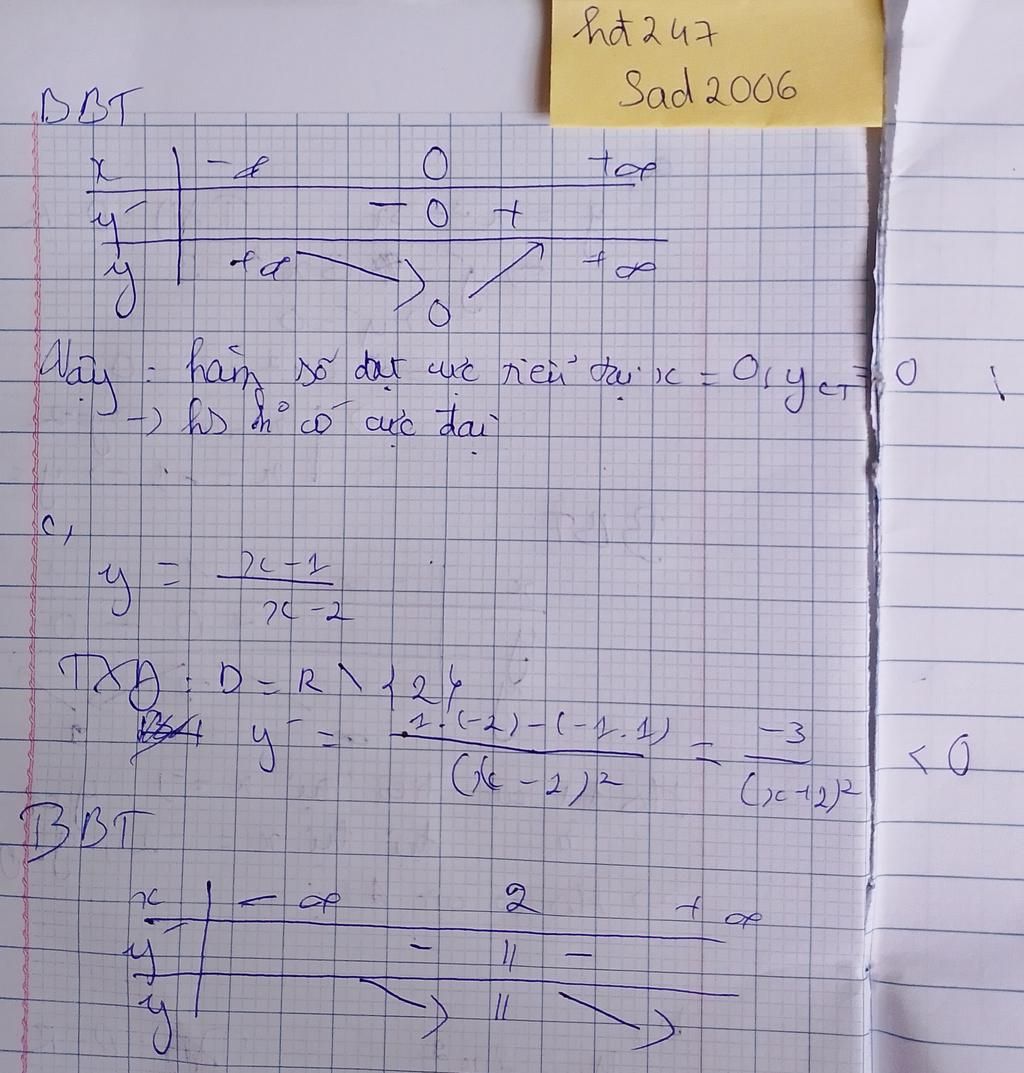 hđ247
Sad2006
BBT
x | -∞ 0 +∞
y' | - 0 +
y | +∞ ↘ 0 ↗ +∞
Vậy : hàm số đạt cực tiểu tại x = 0, y_CT = 0
→ hs k° có cực đại
c,
y = \frac{x-1}{x-2}
TXĐ : D = R \ {2}
y' = \frac{1.(-2)-(-1.1)}{(x-2)^2} = \frac{-3}{(x+2)^2} < 0
BBT
x | -∞ 2 +∞
y' | - || -
y | ↘ || ↘